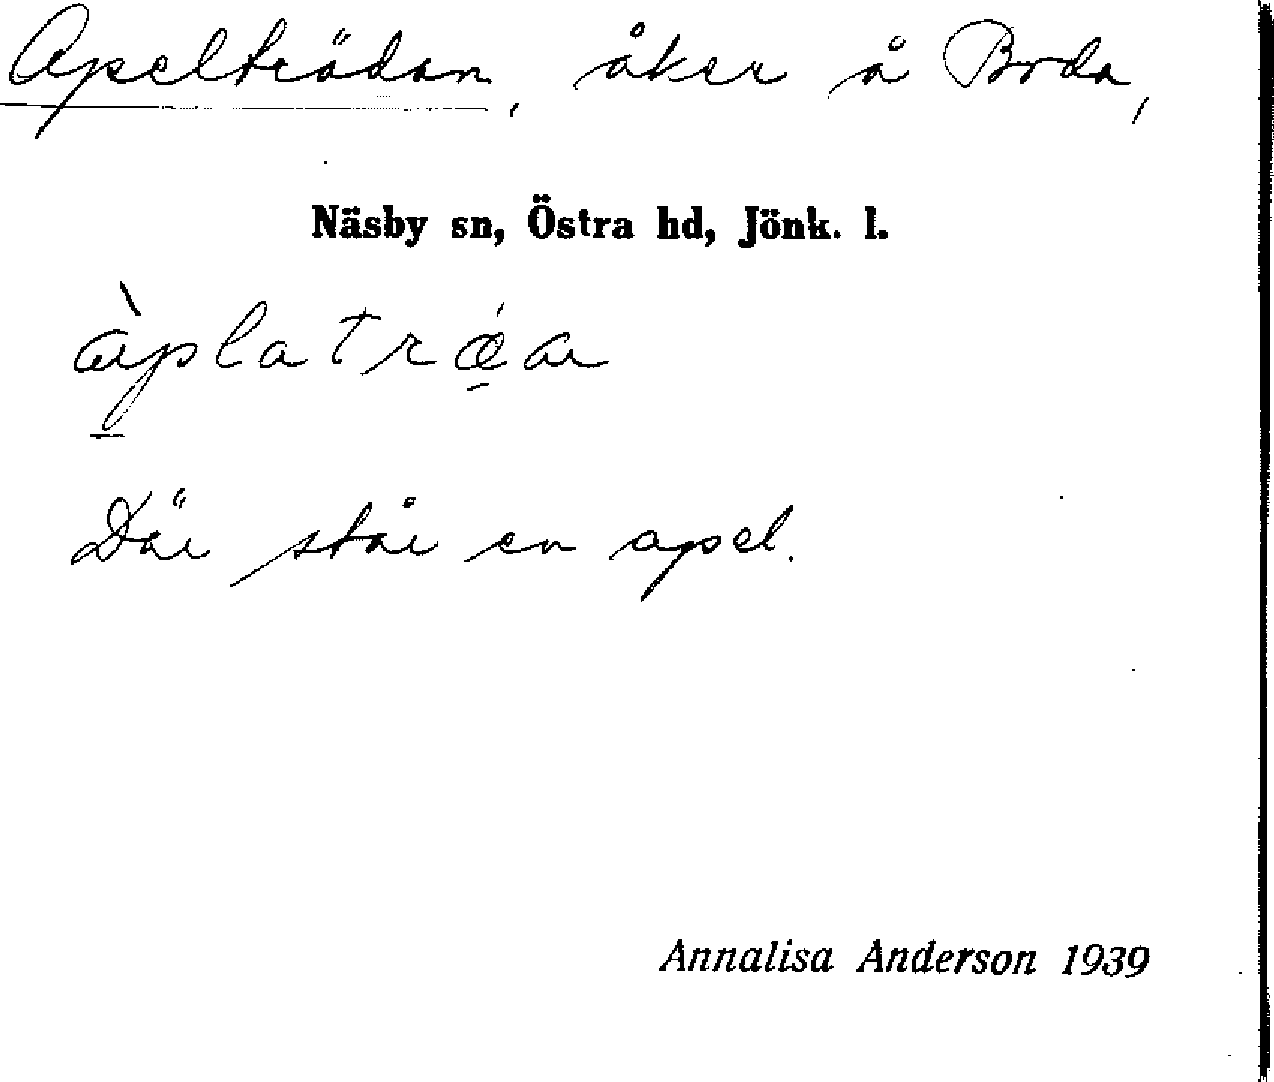 Apelträdan, åker å Boda,
Näsby sn, Östra hd, Jönk. l.
àplatrǽa
Där står en apel.
Annalisa Anderson 1939